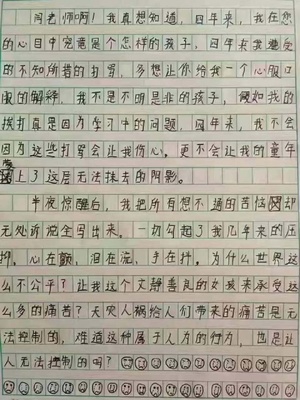 闫老师啊！我真想知道，四年来，我在您
的心目中究竟是个怎样的孩子，四年来我遭受
的不知所措的打骂，多想让你给我一个心服口
服的解释，我不是不明是非的孩子，假如我的
挨打真是因为学习中的问题，四年来，我不会
因为这些打骂会让我伤心。更不会让我的童年
蒙上了这层无法抹去的阴影。
半夜惊醒自，我把所有想不通的苦恼因却
无处诉说全写出来。一切勾起了我几年来的压
抑。心在颤，泪在流，手在抖。为什么世界这
么不公平？让我这个文静善良的女孩来承受这
么多的痛苦？天灾人祸给人们带来的痛苦是无
法控制的，难道这种属于人为的行为，也是让
人无法控制的吗？